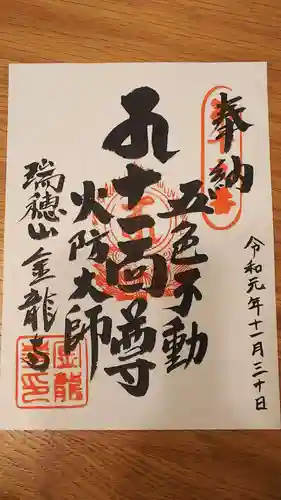 奉納
令和元年十一月三十日
五色不動
十一面尊
火防大師
瑞穂山 金龍寺
金龍
寺印